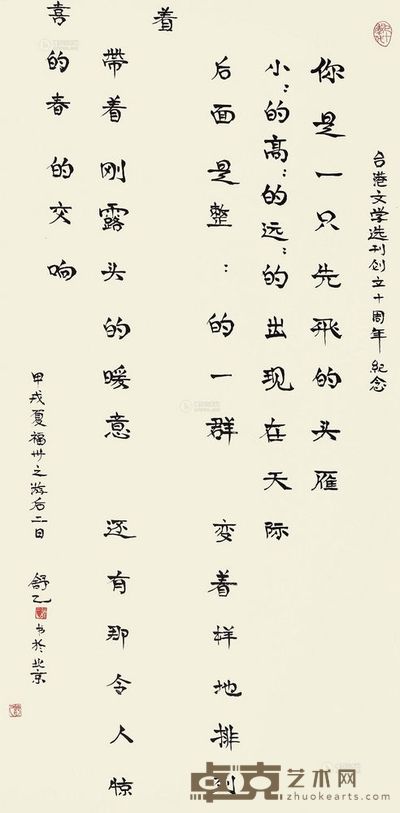 台港文学选刊创立十周年 紀念
你是一只先飛的头雁
小:的高:的远:的出现在天际
后面是整:的一群 变着样地排列
着
帶着刚露头的暖意 还有那令人惊
喜的春的交响
甲戌夏福州之游后二日
舒乙 书於北京
卓克艺术网
zhuokearts.com